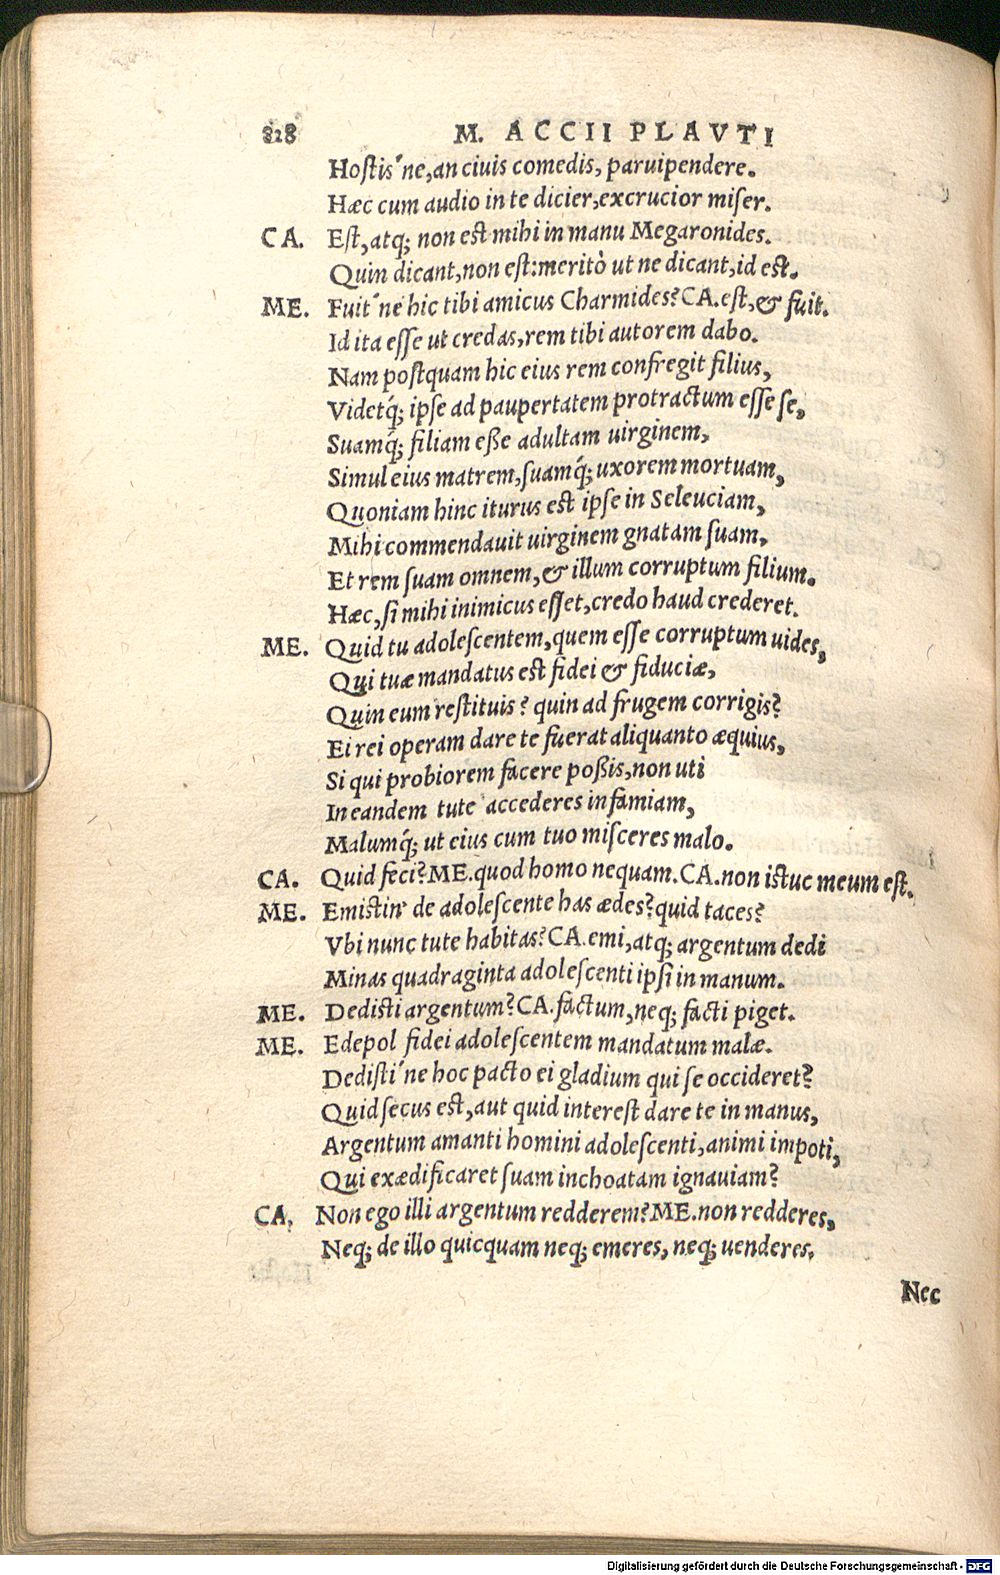 828 M. ACCII PLAVTI
Hostis'ne, an ciuis comedis, paruipendere.
Hæc cum audio in te dicier, excrucior miser.
CA. Est, atq; non est mihi in manu Megaronides.
Quin dicant, non est: meritò ut ne dicant, id est.
ME. Fuit'ne hic tibi amicus Charmides? CA. est, & fuit.
Id ita esse ut credas, rem tibi autorem dabo.
Nam postquam hic eius rem confregit filius,
Videtq́; ipse ad paupertatem protractum esse se,
Suamq́; filiam eße adultam uirginem,
Simul eius matrem, suamq́; uxorem mortuam,
Quoniam hinc iturus est ipse in Seleuciam,
Mihi commendauit uirginem gnatam suam,
Et rem suam omnem, & illum corruptum filium.
Hæc, si mihi inimicus esset, credo haud crederet.
ME. Quid tu adolescentem, quem esse corruptum uides,
Qui tuæ mandatus est fidei & fiduciæ,
Quin eum restituis? quin ad frugem corrigis?
Ei rei operam dare te fuerat aliquanto æquius,
Si qui probiorem facere poßis, non uti
In eandem tute accederes infamiam,
Malumq́; ut eius cum tuo misceres malo.
CA. Quid feci? ME. quod homo nequam. CA. non istuc meum est.
ME. Emistin' de adolescente has ædes? quid taces?
Vbi nunc tute habitas? CA. emi, atq; argentum dedi
Minas quadraginta adolescenti ipsi in manum.
ME. Dedisti argentum? CA. factum, neq; facti piget.
ME. Edepol fidei adolescentem mandatum malæ.
Dedisti'ne hoc pacto ei gladium qui se occideret?
Quid secus est, aut quid interest dare te in manus,
Argentum amanti homini adolescenti, animi impoti,
Qui exædificaret suam inchoatam ignauiam?
CA. Non ego illi argentum redderem? ME. non redderes,
Neq; de illo quicquam neq; emeres, neq; uenderes.
Nec
Digitalisierung gefördert durch die Deutsche Forschungsgemeinschaft - DFG